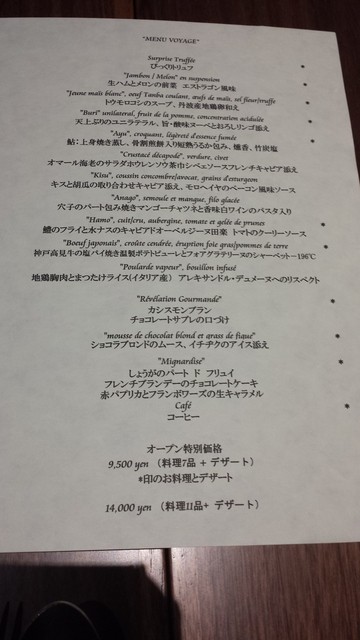 "MENU VOYAGE"
Surprise Truffée
びっくりトリュフ
"Jambon / Melon" en suspension
生ハムとメロンの前菜 エストラゴン風味
"Jeune maïs blanc", oeuf Tanba coulant, œufs de maïs, sel fleur/truffe
トウモロコシのスープ、丹波産地鶏卵和え
"Buri" unilatéral, fruit de la pomme, concentration acidulée
天上ぶりのユニラテラル、旨・酸味ヌーベとおろしリンゴ添え
"Ayu", croquant, légèreté d'essence fumée
鮎:上身焼き蒸し、骨割煎餅入り短熟うるか包み、燻香、竹炭塩
"Crustacé décapode", verdure, civet
オマール海老のサラダホウレンソウ茶巾シベェソースフレンチキャビア添え
"Kisu", coussin concombre/avocat, grains d'esturgeon
キスと胡瓜の取り合わせキャビア添え、モロヘイヤのベーコン風味ソース
"Anago", semoule et mangue, filo glacée
穴子のパート包み焼きマンゴーチャツネと香味白ワインのパスタ入り
"Hamo", cuit/cru, aubergine, tomate et gelée de prunes
鱧のフライと水ナスのキャビアドオーベルジーヌ田楽 トマトのクーリーソース
"Boeuf japonais", croûte cendrée, éruption foie gras/pommes de terre
神戸高見牛の塩パイ焼き温製ポテトピューレとフォアグラテリーヌのシャーベット−196℃
"Poularde vapeur", bouillon infusé
地鶏胸肉とまつたけライス(イタリア産) アレキサンドル・デュメーヌへのリスペクト
"Révélation Gourmande"
カシスモンブラン
チョコレートサブレの口づけ
"mousse de chocolat blond et grass de fique"
ショコラブロンドのムース、イチヂクのアイス添え
"Mignardise"
しょうがのパート ド フリュイ
フレンチブランデーのチョコレートケーキ
赤パプリカとフランボワーズの生キャラメル
Café
コーヒー
オープン特別価格
9,500 yen (料理7品 + デザート)
*印のお料理とデザート
14,000 yen (料理11品+ デザート)